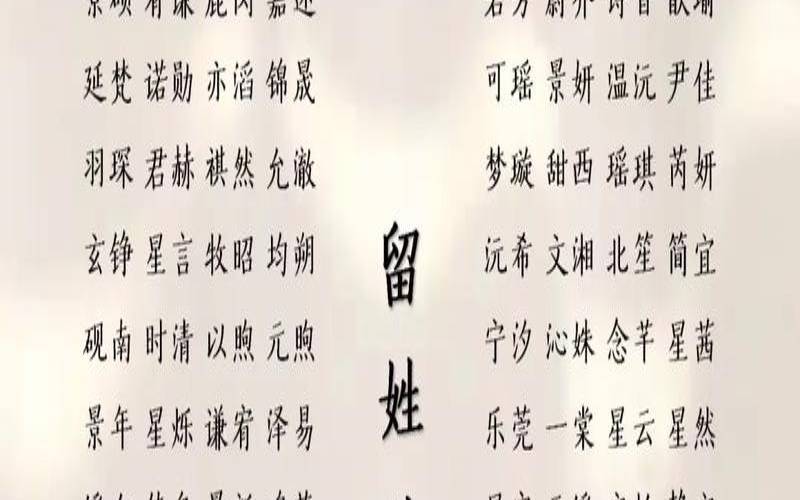 延梵 诺勋 亦滔 锦晟
羽琛 君赫 祺然 允澈
玄铮 星言 牧昭 均朔
砚南 时清 以煦 元煦
景年 星烁 谦宥 泽易
留
姓
可瑶 景妍 温沅 尹佳
梦璇 甜西 瑶琪 芮妍
沅希 文湘 北笙 简宜
宁汐 沁姝 念芊 星茜
乐莞 一棠 星云 星然